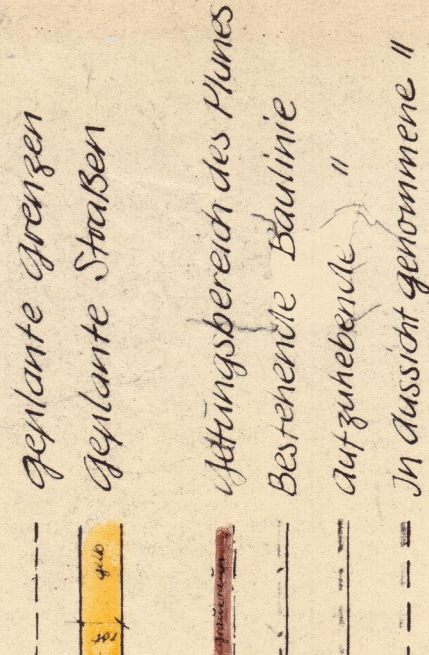 geplante Grenzen
geplante Straßen
gelb
rot
Geltungsbereich des Planes
graubraun
Bestehende Baulinie
aufzuhebende "
In Aussicht genommene "